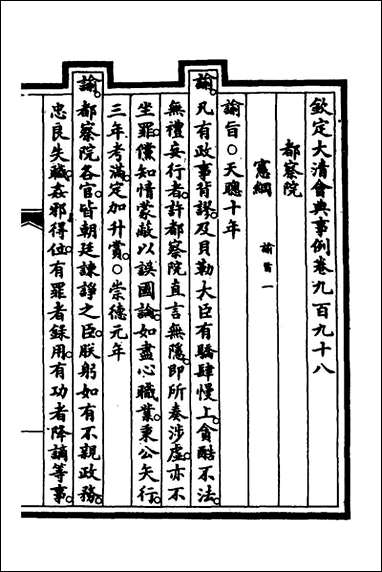 欽定大清會典事例卷九百九十八
都察院
憲綱 諭旨一
諭旨○天聰十年
諭凡有政事背謬及貝勒大臣有驕肆慢上貪酷不法
無禮妄行者許都察院直言無隱即所奏涉虛亦不
坐罪儻知情蒙蔽以誤國論如盡心職業秉公矢行
三年考滿定加升賞○崇德元年
諭都察院各官皆朝廷諫諍之臣朕躬如有不親政務
忠良失職姦邪得位有罪者錄用有功者降謫等事